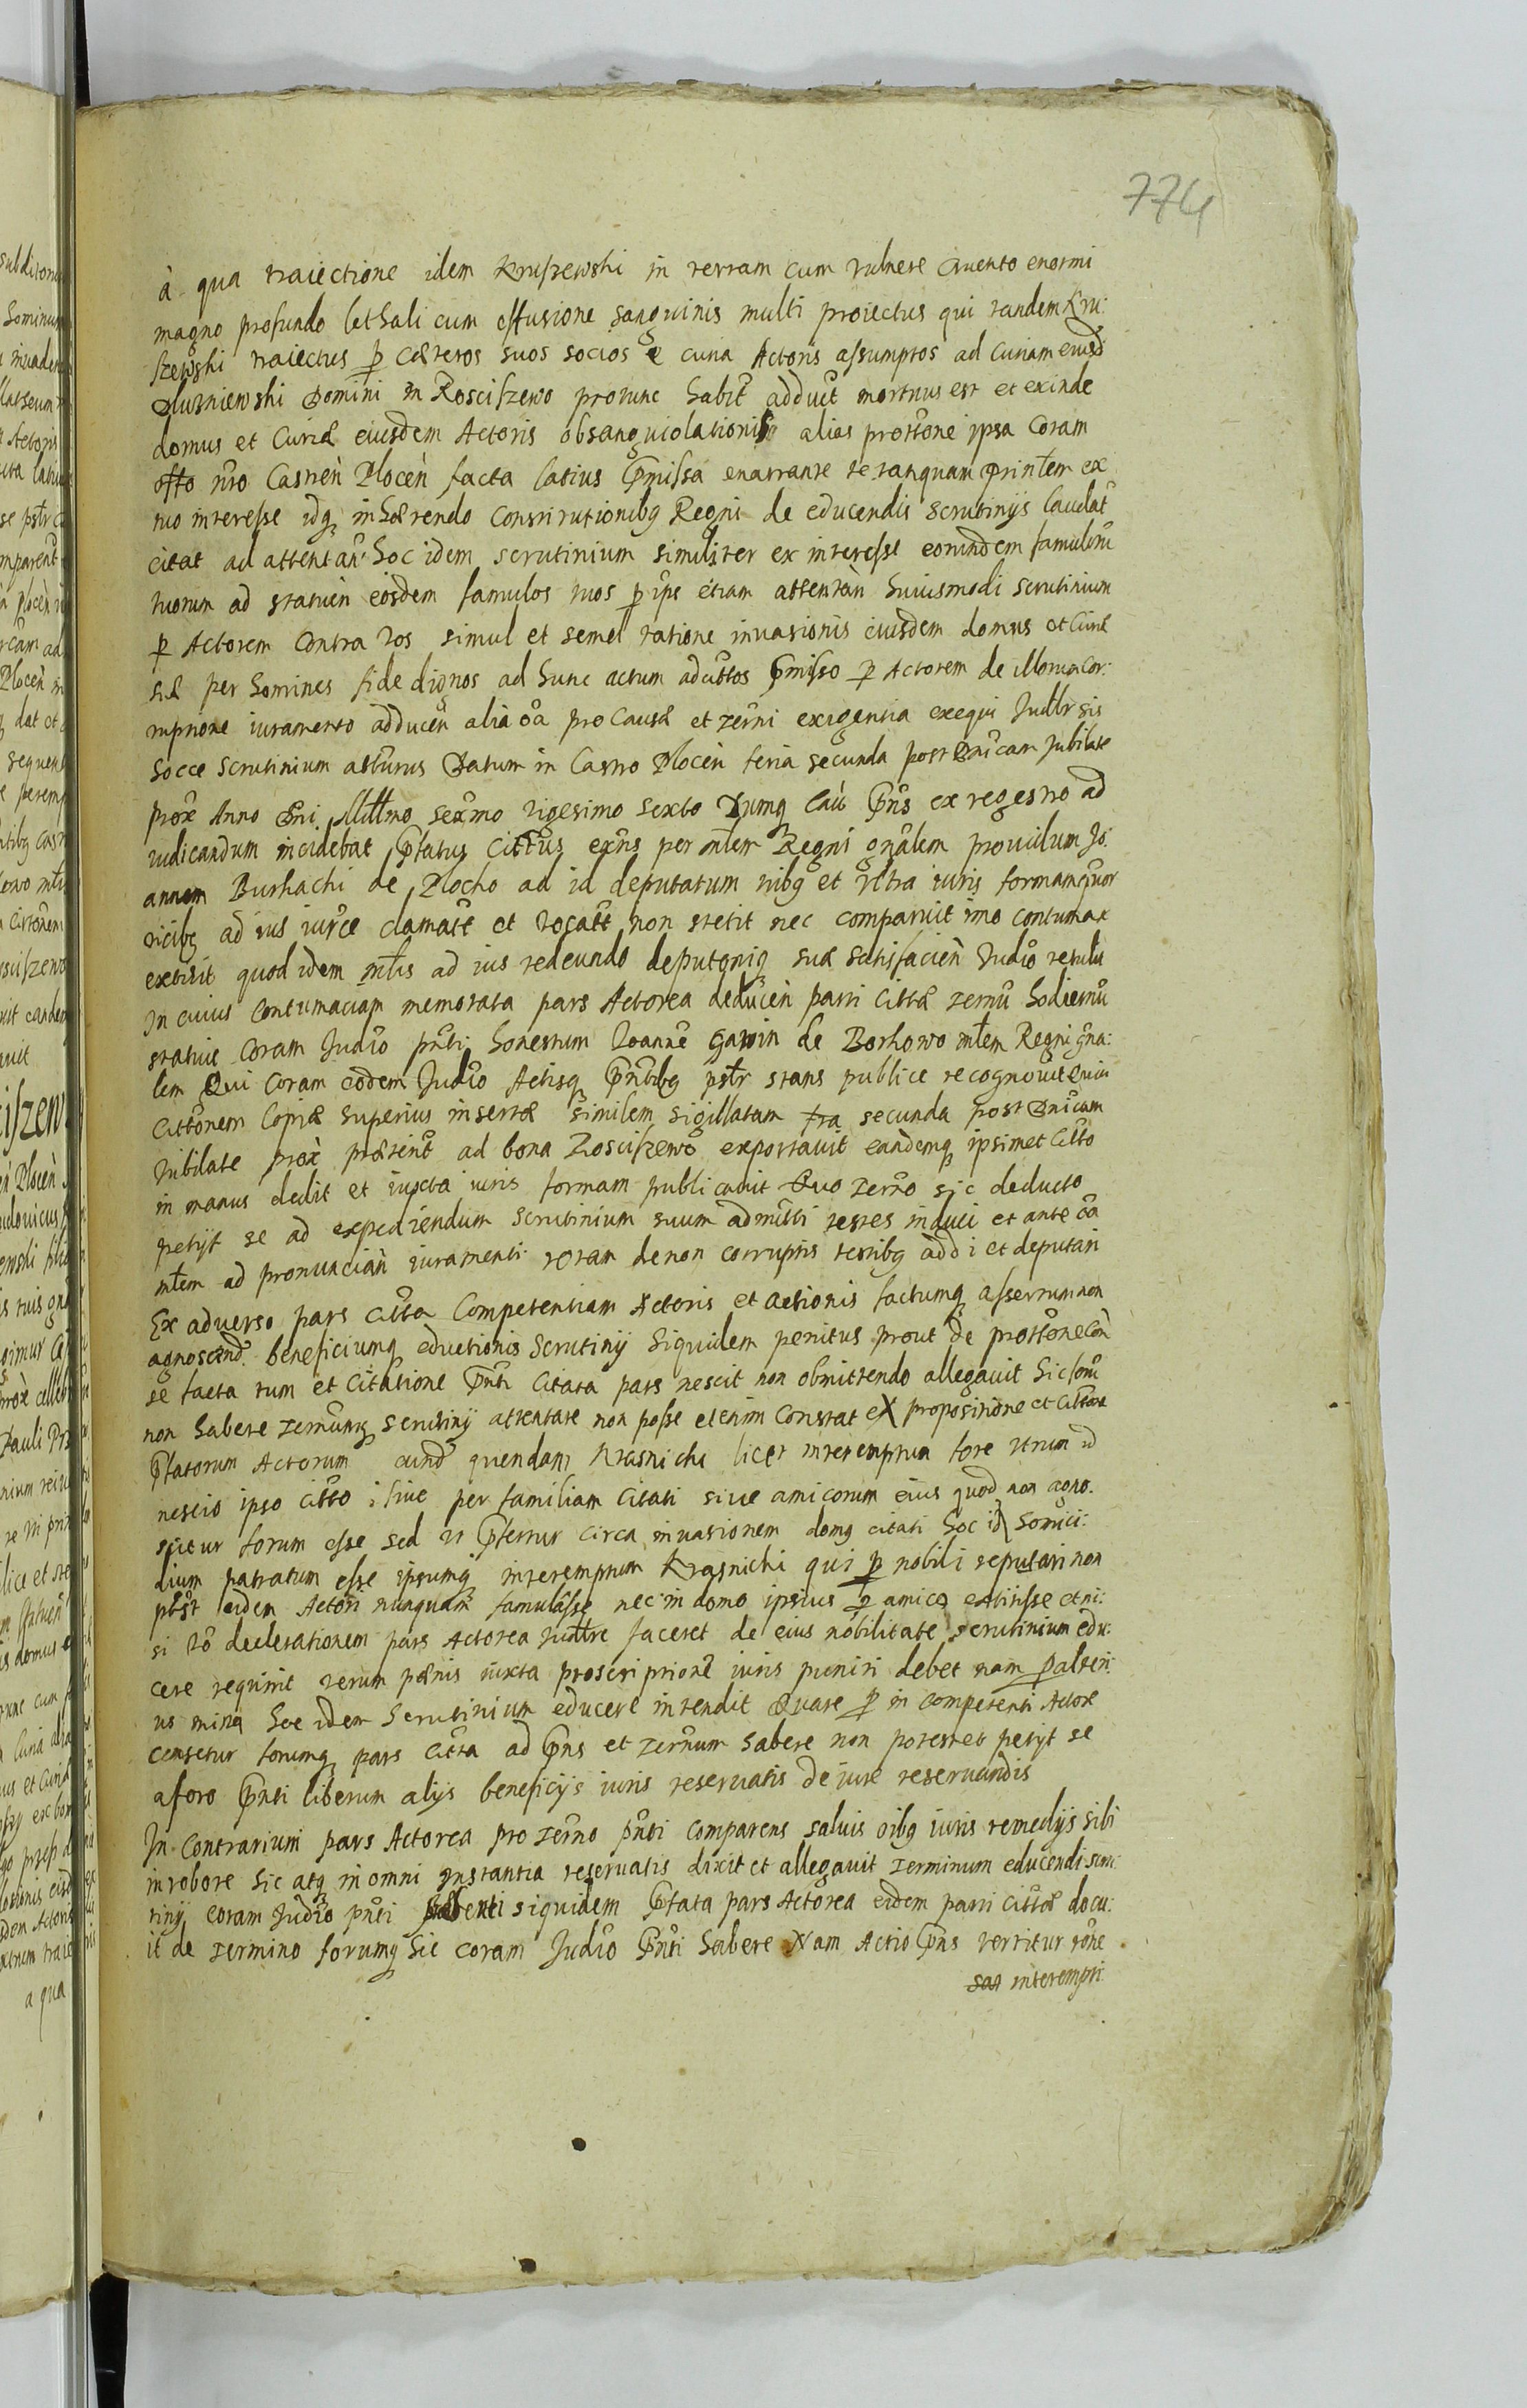 774
à qua traiectione idem Kruszewski in terram cum vulnere cruento enormi
magno profundo lethali cum effusione sanguinis multi proiectus qui tandem Kru:
szewski traiectus p cæteros suos socios e curia Actoris assumptos ad Curiam eiusd
Dłużniewski Domini in Rosciszewo protunc habit adduct mortuus est et exinde
domus et Curiæ eiusdem Actoris obsanguiolationis alias prottone ipsa Coram
offo nro Castren Plocen facta latius pmissa enarrante te tanquam Printem ex
tuo interesse idq inhærendo Constitutionibq Regni de educendis scrutinijs laudat
citat ad attentan hoc idem scrutinium similiter ex interesse eorundem famuloru
tuorum ad statuen eosdem famulos tuos p ips etiam attentan huiusmodi scrutinium
p Actorem Contra vos simul et semel ratione invasionis eiusdem domus et Curiæ
suæ per homines fide dignos ad hunc actum adcittos pmisso p Actorem de illorum Cor:
ruptione iuramento adducen alia oa pro Causæ et termi exigentia exequi Judtr sis
hocce scrutinium atturus Datum in Castro Plocen feria secunda post Dnicam Jubilate
prox Anno Dni Milłmo sexmo vigesimo sexto Dumq Caū pns ex regestro ad
iudicandum incidebat ptatus Cittus exns per mtem Regni gnalem providum Jo:
annem Burkachi de Plocko ad id deputatum tribq et ultra iuris formam quor
vicibq ad ius iurce clamatt et vocatt non stetit nec comparuit imo contumax
extitit quod idem mtis ad ius redeundo deputoniq suæ satisfacien Judio retulit
In cuius Contumaciam memorata pars Actorea deducen parti Cittæ termu hodiernu
statuit Coram Judio pnti honestum Joanne Gawin de Borkowo mtem Regni gna:
lem Qui Coram eodem Judio Actisq pntibq pstr stans publice recognovit Quia
Cittonem Copiæ superius insertæ similem sigillatam fra secunda post Dnicam
Jubilate prox præterit ad bona Rosciszewo exportavit eandemq ipsimet Citto
in manus dedit et iuxta iuris formam publicavit Quo termo sic deducto
petijt se ad expediendum scrutinium suum admitti testes induci et ante oa
mtem ad pronuncian iuramenti rotam de non corruptis testibq addi et deputari
Ex adverso pars citta Competentiam Actoris et actionis factumq assertum non
agnoscend beneficiumq eductionis Scrutinij siquidem penitus prout de prottone Con
se facta tum et Citatione pnti Citata pars nescit non obmittendo allegavit hic foru
non habere termumq scrutinij attentare non posse etenim Constat ex propositione et Cittone
ptatorum Actorum eund quendam Krasnicki licet interemptum fore utrum id
nescio ipso Citto sive per familiam Citati sive amicorum eius quod non agno:
scitur forum esse sed ut pfertur circa invasionem domq citati hoc id homici:
dium patratum esse ipsumq interemptum Krasnicki qui p nobili reputari non
ptest eidem Actori nunquam famulasse nec in domo ipsius p amico extitisse et ni:
si vo declerationem pars Actorea Judtre faceret de eius nobilitate scrutinium edu:
cere requirit verum pœnis iuxta proscriptione iuris puniri debet nam palteri:
us minq hoc idem scrutinium educere intendit Quare p in Competenti Actore
censetur forumq pars Citta ad pns et termum habere non potest et petijt se
a foro pnti liberum alijs beneficijs iuris reservatis de iure reservandis
In Contrarium pars Actorea pro termo pnti comparens salvis oibq iuris remedijs sibi
in robore sic atq in omni instantia reservatis dixit et allegavit terminum educendi scru:
tinij Coram Judio pnti siquidem ptata pars Actorea eidem parti Cittæ docu:
it de termino forumq hic coram Judio pnti habere Nam Actio pns vertitur rone
interempti